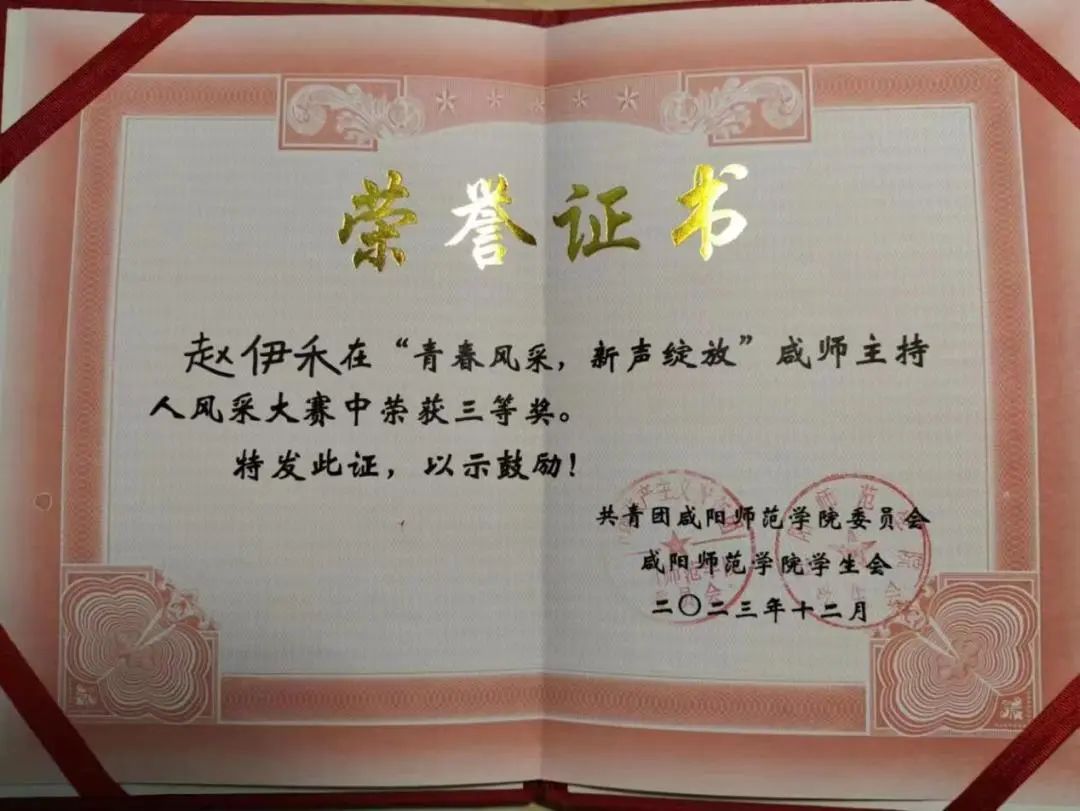 荣誉证书
赵伊禾在“青春风采,新声绽放”咸师主持
人风采大赛中荣获三等奖。
特发此证,以示鼓励!
共青团咸阳师范学院委员会
咸阳师范学院学生会
二〇二三年十二月